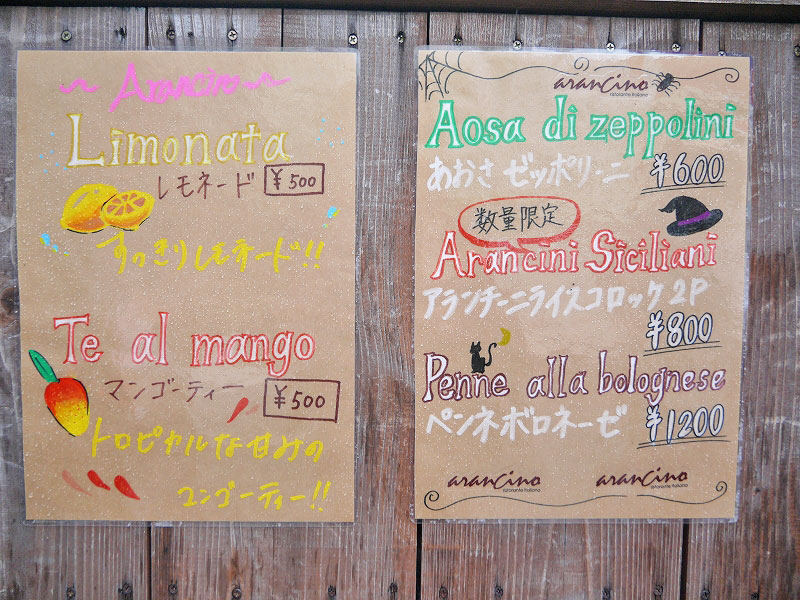 Arancino
Limonata
レモネード ¥500
すっきりレモネード!!
Te al mango
マンゴーティー ¥500
トロピカルな甘みの
マンゴーティー!!
arancino
ristorante italiano
Aosa di zeppolini
あおさ ゼッポリーニ ¥600
数量限定
Arancini Siciliani
アランチーニライスコロッケ 2P
¥800
Penne alla bolognese
ペンネボロネーゼ ¥1200
arancino arancino
ristorante italiano ristorante italiano